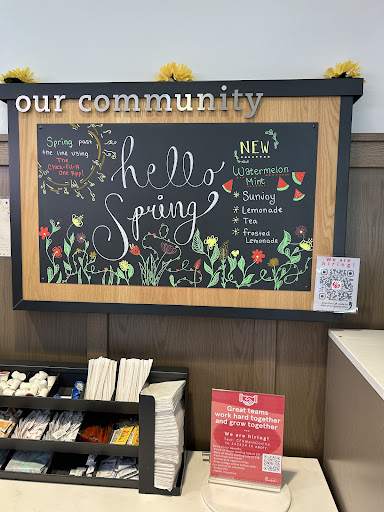 our community
Spring past
the line using
The
Chick-fil-A
One App!
hello
Spring
NEW
Watermelon
Mint
* Sunjoy
* Lemonade
* Tea
* Frosted
Lemonade
WE ARE
HIRING!
Great teams
work hard together
and grow together
We are hiring!